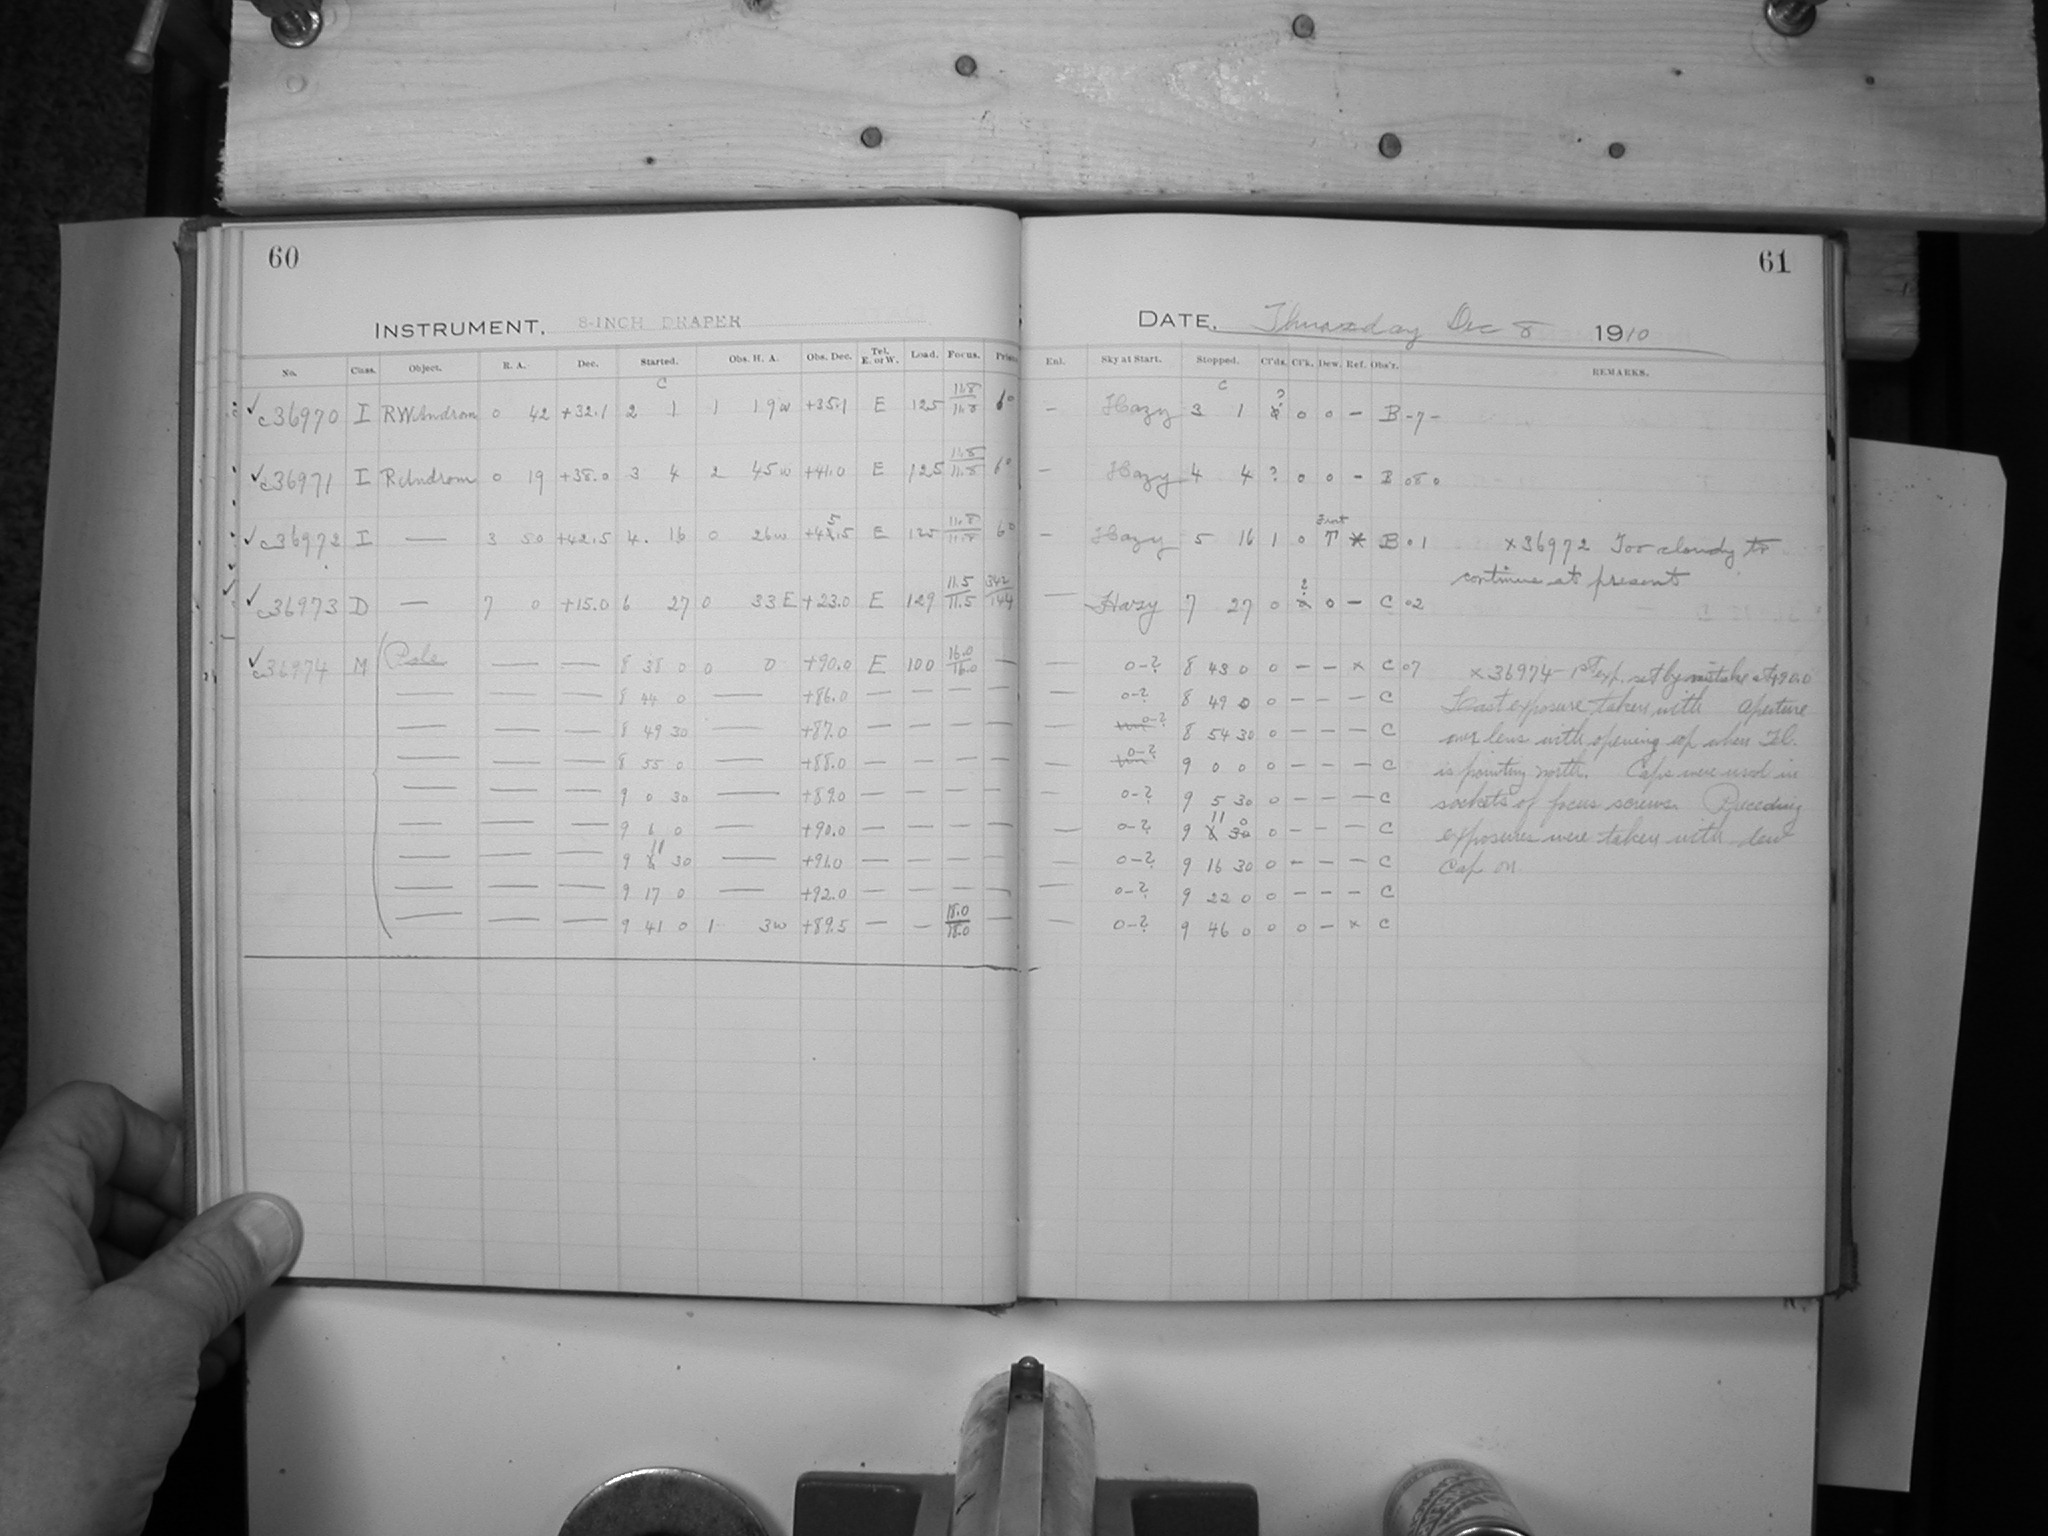 60
INSTRUMENT. 8-INCH DRAPER
No. Class. Object. R. A. Dec. Started. Obs. H. A. Obs. Dec. Tel. E. or W. Load. Focus. Prism
c36970 I RW Androm 0 42 +32.1 2 1 1 19w +35.1 E 125 11.8/11.8 6°
c36971 I R Androm 0 19 +38.0 3 4 2 45w +41.0 E 125 11.8/11.8 6°
c36972 I — 3 50 +42.5 4. 16 0 26w +45.5 E 125 11.8/11.8 6°
c36973 D — 7 0 +15.0 6 27 0 33E +23.0 E 129 11.5/11.5 342/144
c36974 M Pole — — 8 38 0 0 0 +90.0 E 100 16.0/16.0 —
— — — 8 44 0 — +86.0 — — — —
— — — 8 49 30 — +87.0 — — — —
— — — 8 55 0 — +88.0 — — — —
— — — 9 0 30 — +89.0 — — — —
— — — 9 6 0 — +90.0 — — — —
— — — 9 11 30 — +91.0 — — — —
— — — 9 17 0 — +92.0 — — — —
— — — 9 41 0 1 3w +89.5 — — 18.0/18.0 —
61
DATE. Thursday Dec 8 1910
Enl. Sky at Start. Stopped. Cl'ds. Cl'k. Dew. Ref. Obs'r. REMARKS.
— Hazy 3 1 ? 0 0 — B -7-
— Hazy 4 4 ? 0 0 — B 080
— Hazy 5 16 1 0 Frost T * B 01 x36972 Too cloudy to
continue at present
— Hazy 7 27 0 ? 0 — C 02
— 0-? 8 43 0 0 — — x C 07 x36974 - 1st exp. set by mistake at +90.0
— 0-? 8 49 0 0 — — — C Last exposure taken with aperture
— 0-? 8 54 30 0 — — — C over lens with opening up when Tel.
— 0-? 9 0 0 0 — — — C is pointing north. Caps were used in
— 0-? 9 5 30 0 — — — C sockets of focus screws. Preceding
— 0-? 9 11 0 0 — — — C exposures were taken with dew
— 0-? 9 16 30 0 — — — C Cap on
— 0-? 9 22 0 0 — — — C
— 0-? 9 46 0 0 0 — x C